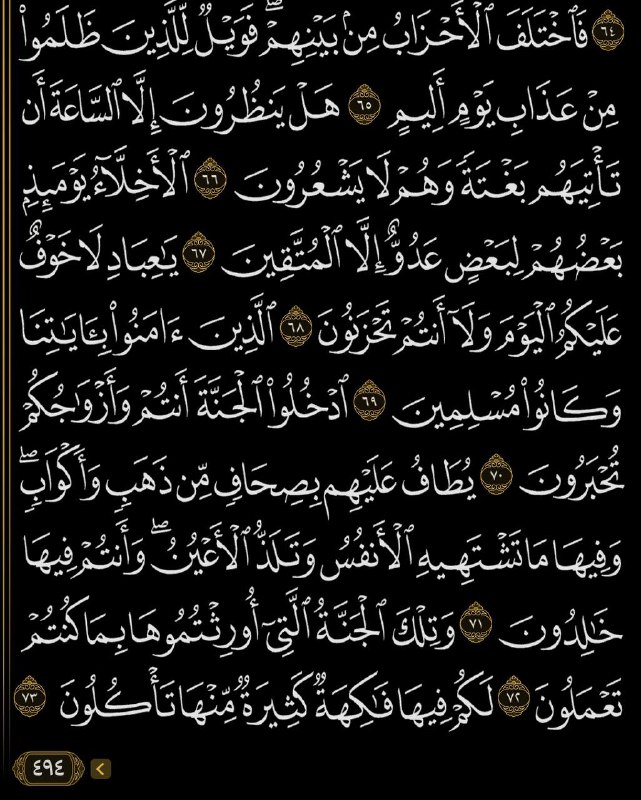 ٦٤ فَٱخۡتَلَفَ ٱلۡأَحۡزَابُ مِنۢ بَيۡنِهِمۡۖ فَوَيۡلٞ لِّلَّذِينَ ظَلَمُواْ
مِنۡ عَذَابِ يَوۡمٍ أَلِيمٍ ٦٥ هَلۡ يَنظُرُونَ إِلَّا ٱلسَّاعَةَ أَن
تَأۡتِيَهُم بَغۡتَةٗ وَهُمۡ لَا يَشۡعُرُونَ ٦٦ ٱلۡأَخِلَّآءُ يَوۡمَئِذِۭ
بَعۡضُهُمۡ لِبَعۡضٍ عَدُوٌّ إِلَّا ٱلۡمُتَّقِينَ ٦٧ يَٰعِبَادِ لَا خَوۡفٌ
عَلَيۡكُمُ ٱلۡيَوۡمَ وَلَآ أَنتُمۡ تَحۡزَنُونَ ٦٨ ٱلَّذِينَ ءَامَنُواْ بِـَٔايَٰتِنَا
وَكَانُواْ مُسۡلِمِينَ ٦٩ ٱدۡخُلُواْ ٱلۡجَنَّةَ أَنتُمۡ وَأَزۡوَٰجُكُمۡ
تُحۡبَرُونَ ٧٠ يُطَافُ عَلَيۡهِم بِصِحَافٖ مِّن ذَهَبٖ وَأَكۡوَابٖۖ
وَفِيهَا مَا تَشۡتَهِيهِ ٱلۡأَنفُسُ وَتَلَذُّ ٱلۡأَعۡيُنُۖ وَأَنتُمۡ فِيهَا
خَٰلِدُونَ ٧١ وَتِلۡكَ ٱلۡجَنَّةُ ٱلَّتِيٓ أُورِثۡتُمُوهَا بِمَا كُنتُمۡ
تَعۡمَلُونَ ٧٢ لَكُمۡ فِيهَا فَٰكِهَةٞ كَثِيرَةٞ مِّنۡهَا تَأۡكُلُونَ ٧٣
٤٩٤